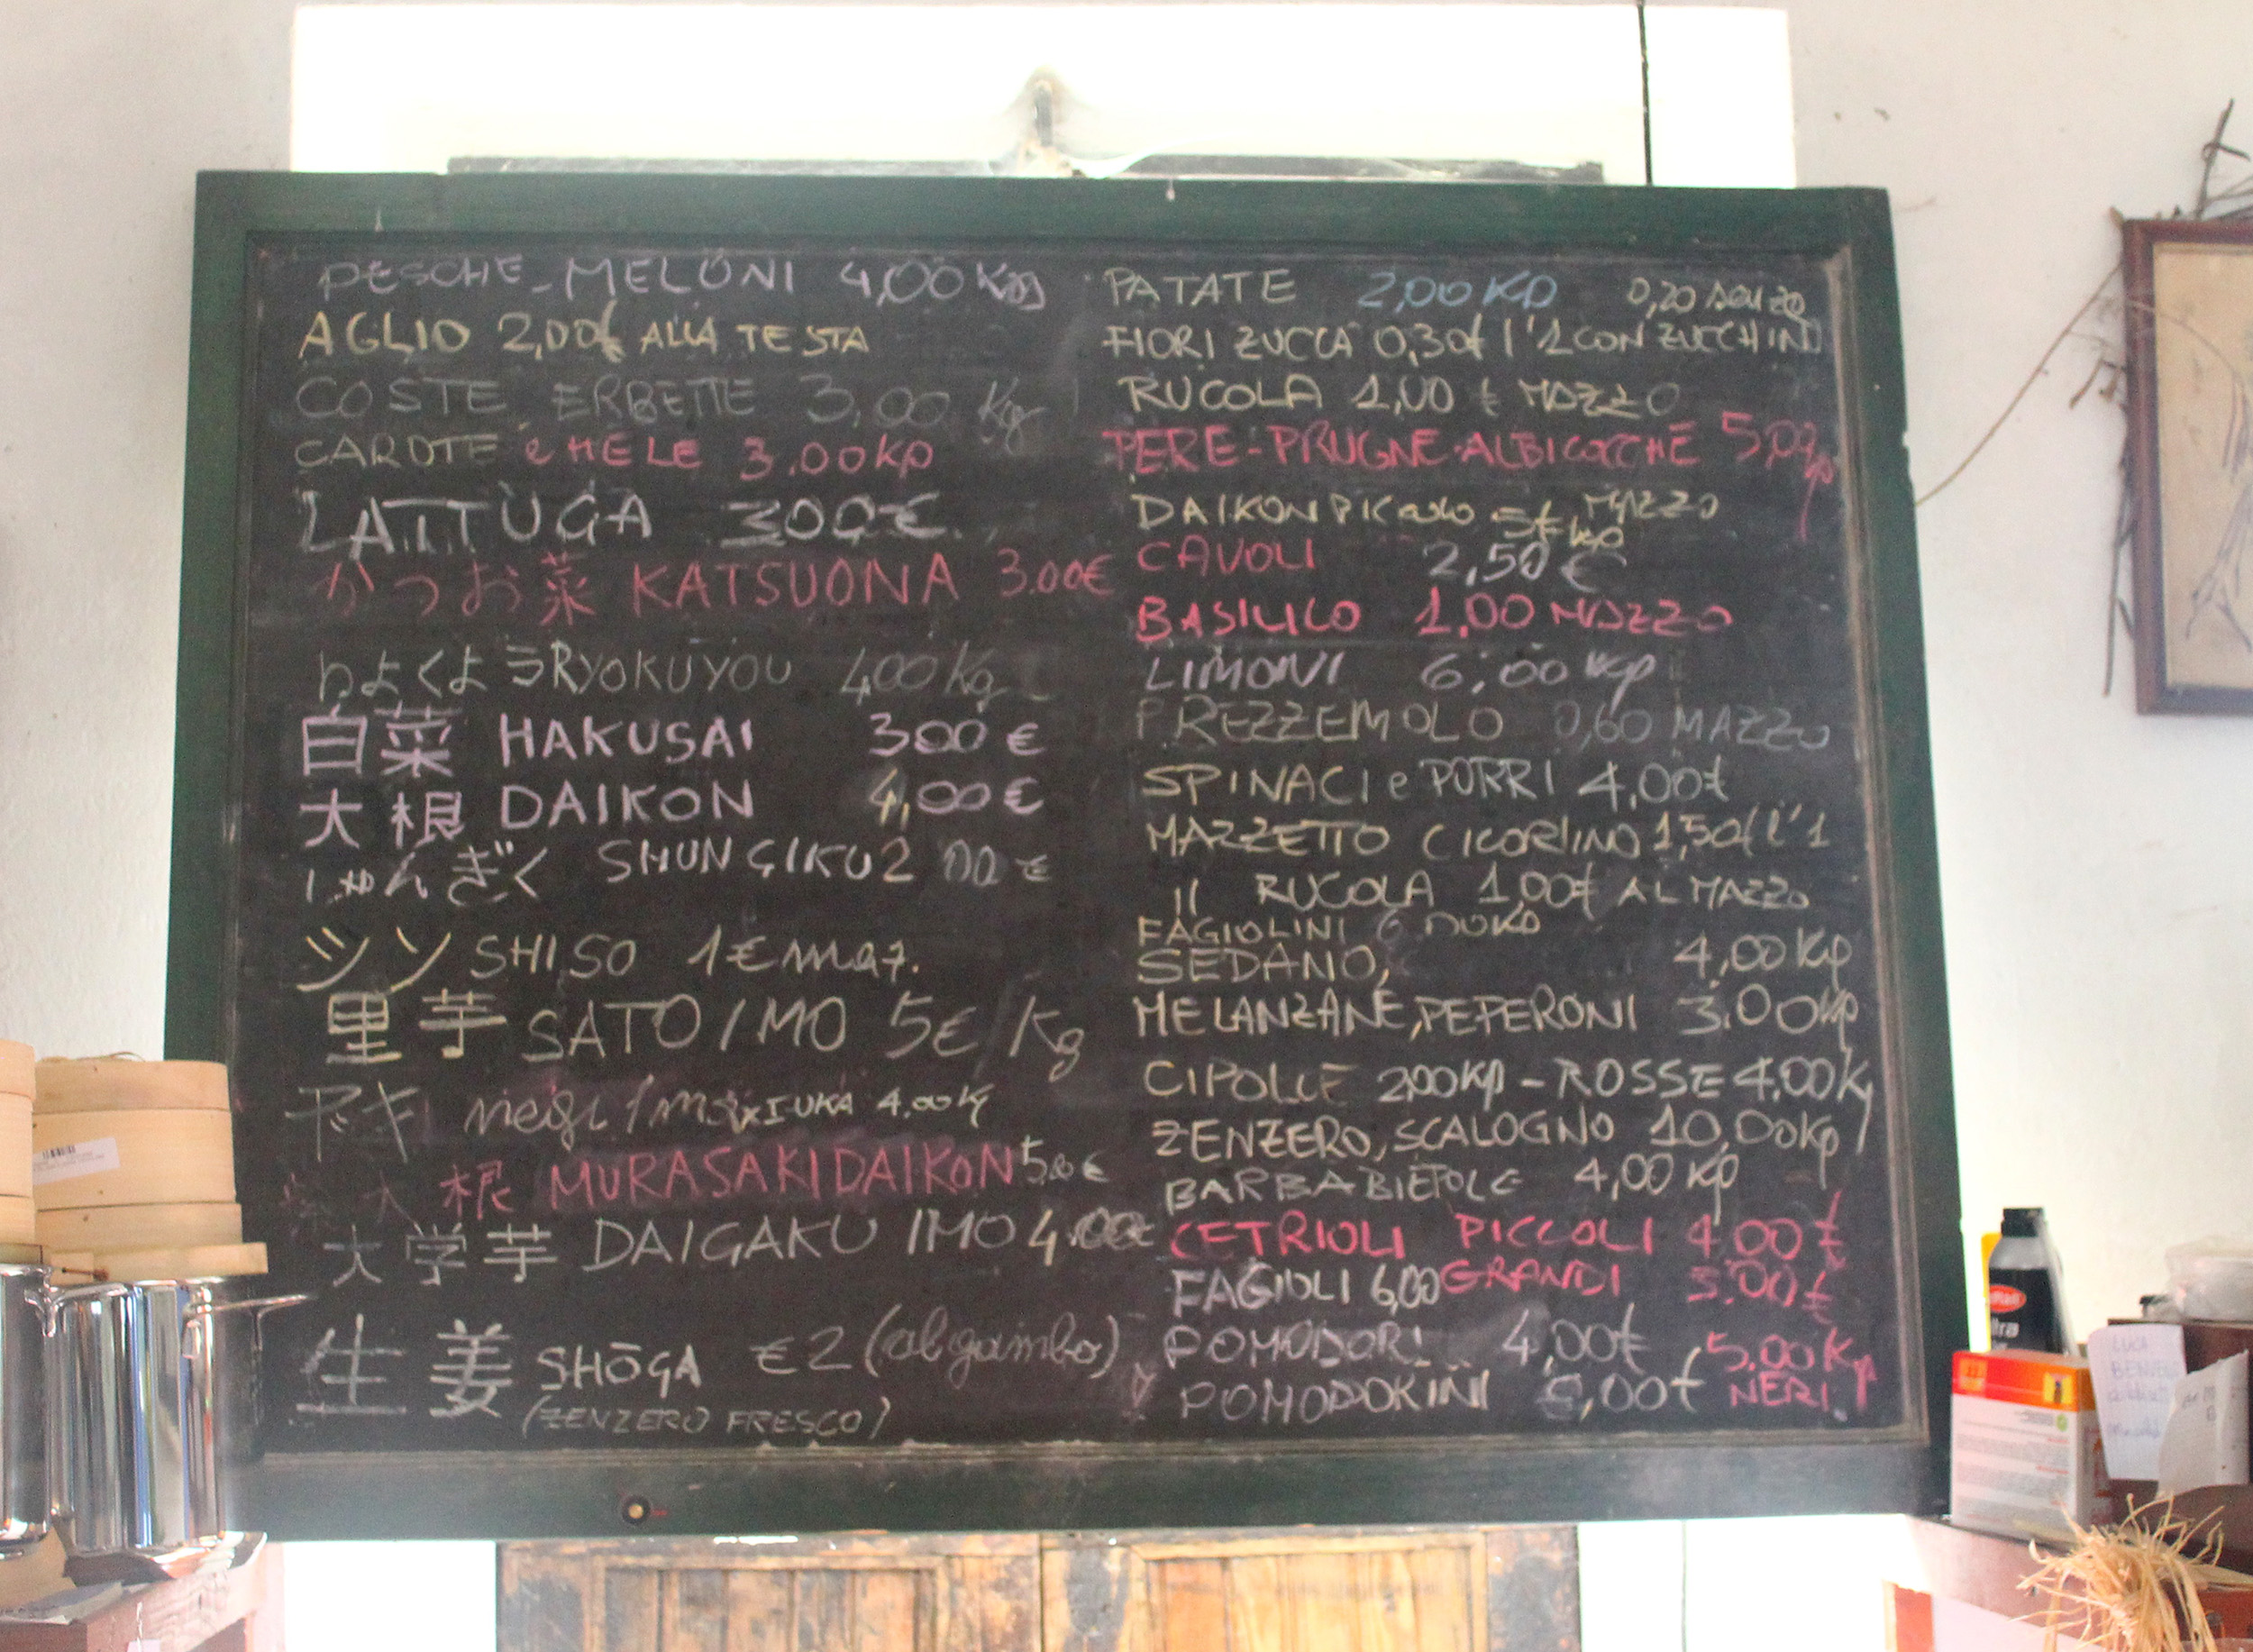 PESCHE - MELONI 4,00 Kg
AGLIO 2,00€ ALLA TESTA
COSTE ERBETTE 3,00 Kg
CAROTE e MELE 3.00 Kg
LATTUGA 300€
かつお菜 KATSUONA 3.00€
りょくよう RYOKUYOU 400 Kg
白菜 HAKUSAI 300 €
大根 DAIKON 4,00 €
しゅんぎく SHUNGIKU 2 00 €
シソ SHISO 1€ maz.
里芋 SATO IMO 5€/Kg
negi 4.00 Kg
大根 MURASAKI DAIKON
大学芋 DAIGAKU IMO 4.00€
生姜 SHŌGA €2 (al gambo)
(ZENZERO FRESCO)
PATATE 2,00 Kg
0,20 senza
FIORI ZUCCA 0,30€ l'1 CON ZUCCHINO
RUCOLA 1,00 € MAZZO
PERE - PRUGNE - ALBICOCCHE
DAIKON PICCOLO MAZZO
CAVOLI 2,50 €
BASILICO 1,00 MAZZO
LIMONI 6,00 Kg
PREZZEMOLO 0,60 MAZZO
SPINACI e PORRI 4,00€
MAZZETTO CICORINO 1,50€ l'1
11 RUCOLA 1,00€ AL MAZZO
FAGIOLINI
SEDANO, 4,00 Kg
MELANZANE, PEPERONI 3.00 Kg
CIPOLLE 2,00 Kg - ROSSE 4.00 K
ZENZERO, SCALOGNO 10,00 Kg
BARBABIETOLE 4,00 Kg
CETRIOLI PICCOLI 4.00 €
FAGIOLI 6,00 GRANDI 3.00 €
POMODORI 4,00€ 5.00 Kg
POMODORINI NERI